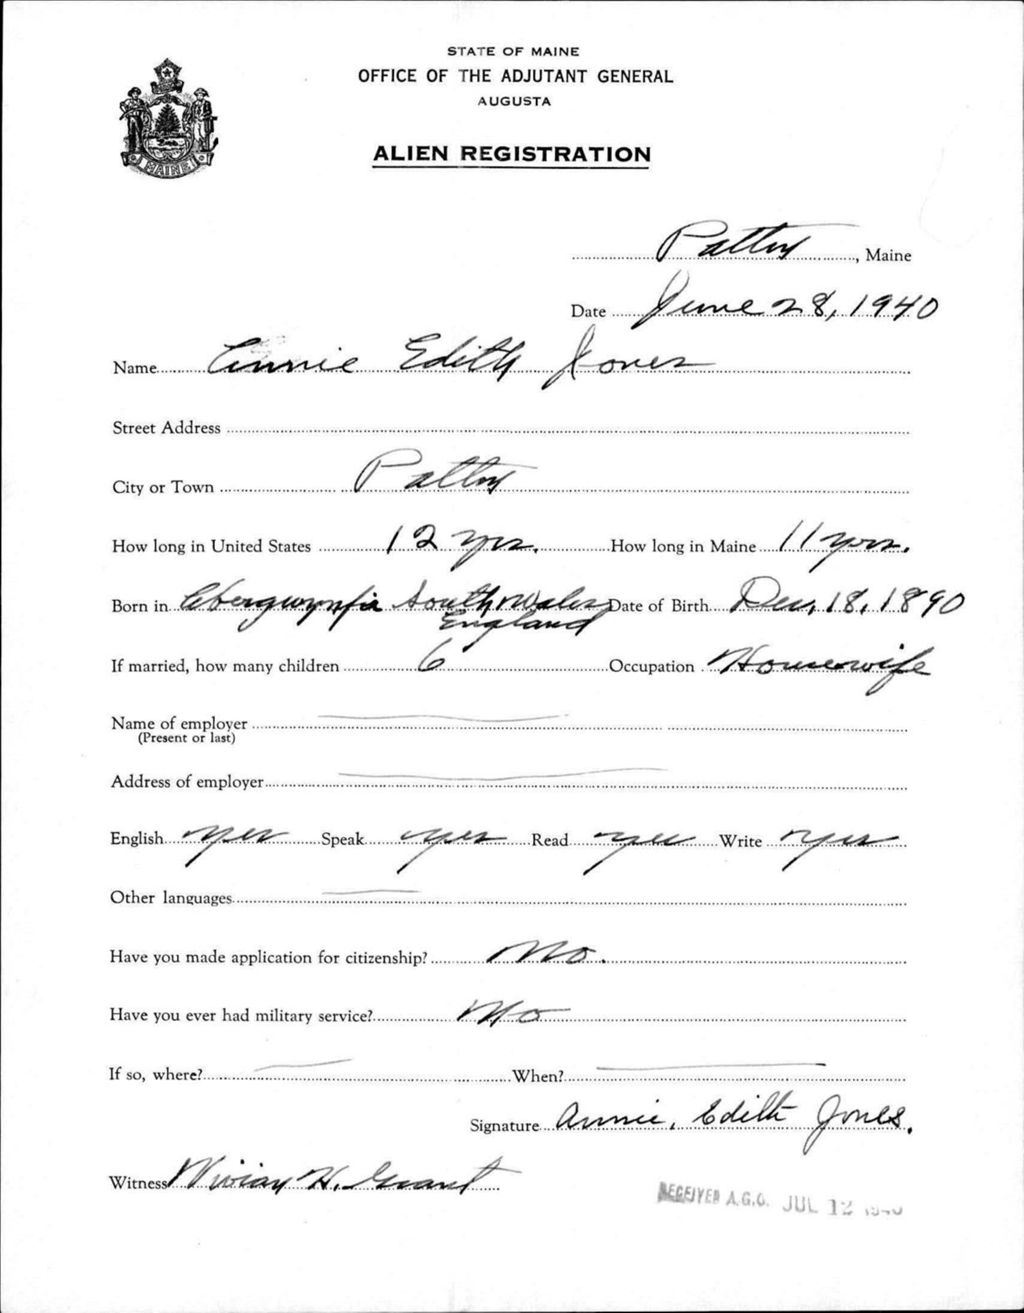 STATE OF MAINE
OFFICE OF THE ADJUTANT GENERAL
AUGUSTA
MAINE
ALIEN REGISTRATION
Patten, Maine
Date June 28, 1940
Name Annie Edith Jones
Street Address
City or Town Patten
How long in United States 12 yrs. How long in Maine 11 yrs.
Born in Abergwynfi South Wales England Date of Birth Dec. 18, 1890
If married, how many children 6 Occupation Housewife
Name of employer
(Present or last)
Address of employer
English yes Speak yes Read yes Write yes
Other languages
Have you made application for citizenship? No.
Have you ever had military service? No
If so, where? When?
Signature Annie Edith Jones.
Witness Vivian H. Grant
RECEIVED A.G.O. JUL 12 1940